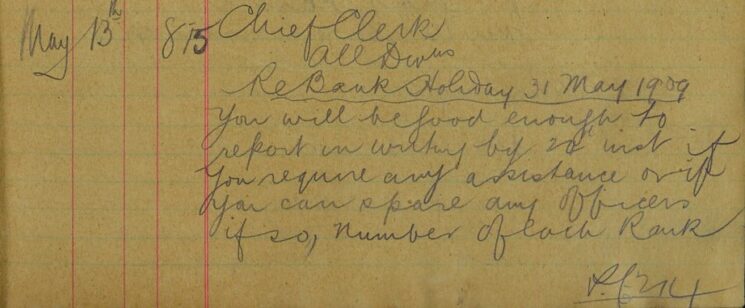 May 13th 8 15 Chief Clerk
All Divns
Re Bank Holiday 31 May 1909
You will be good enough to
report in writing by 20th inst if
you require any assistance or if
you can spare any officers
if so, number of each Rank